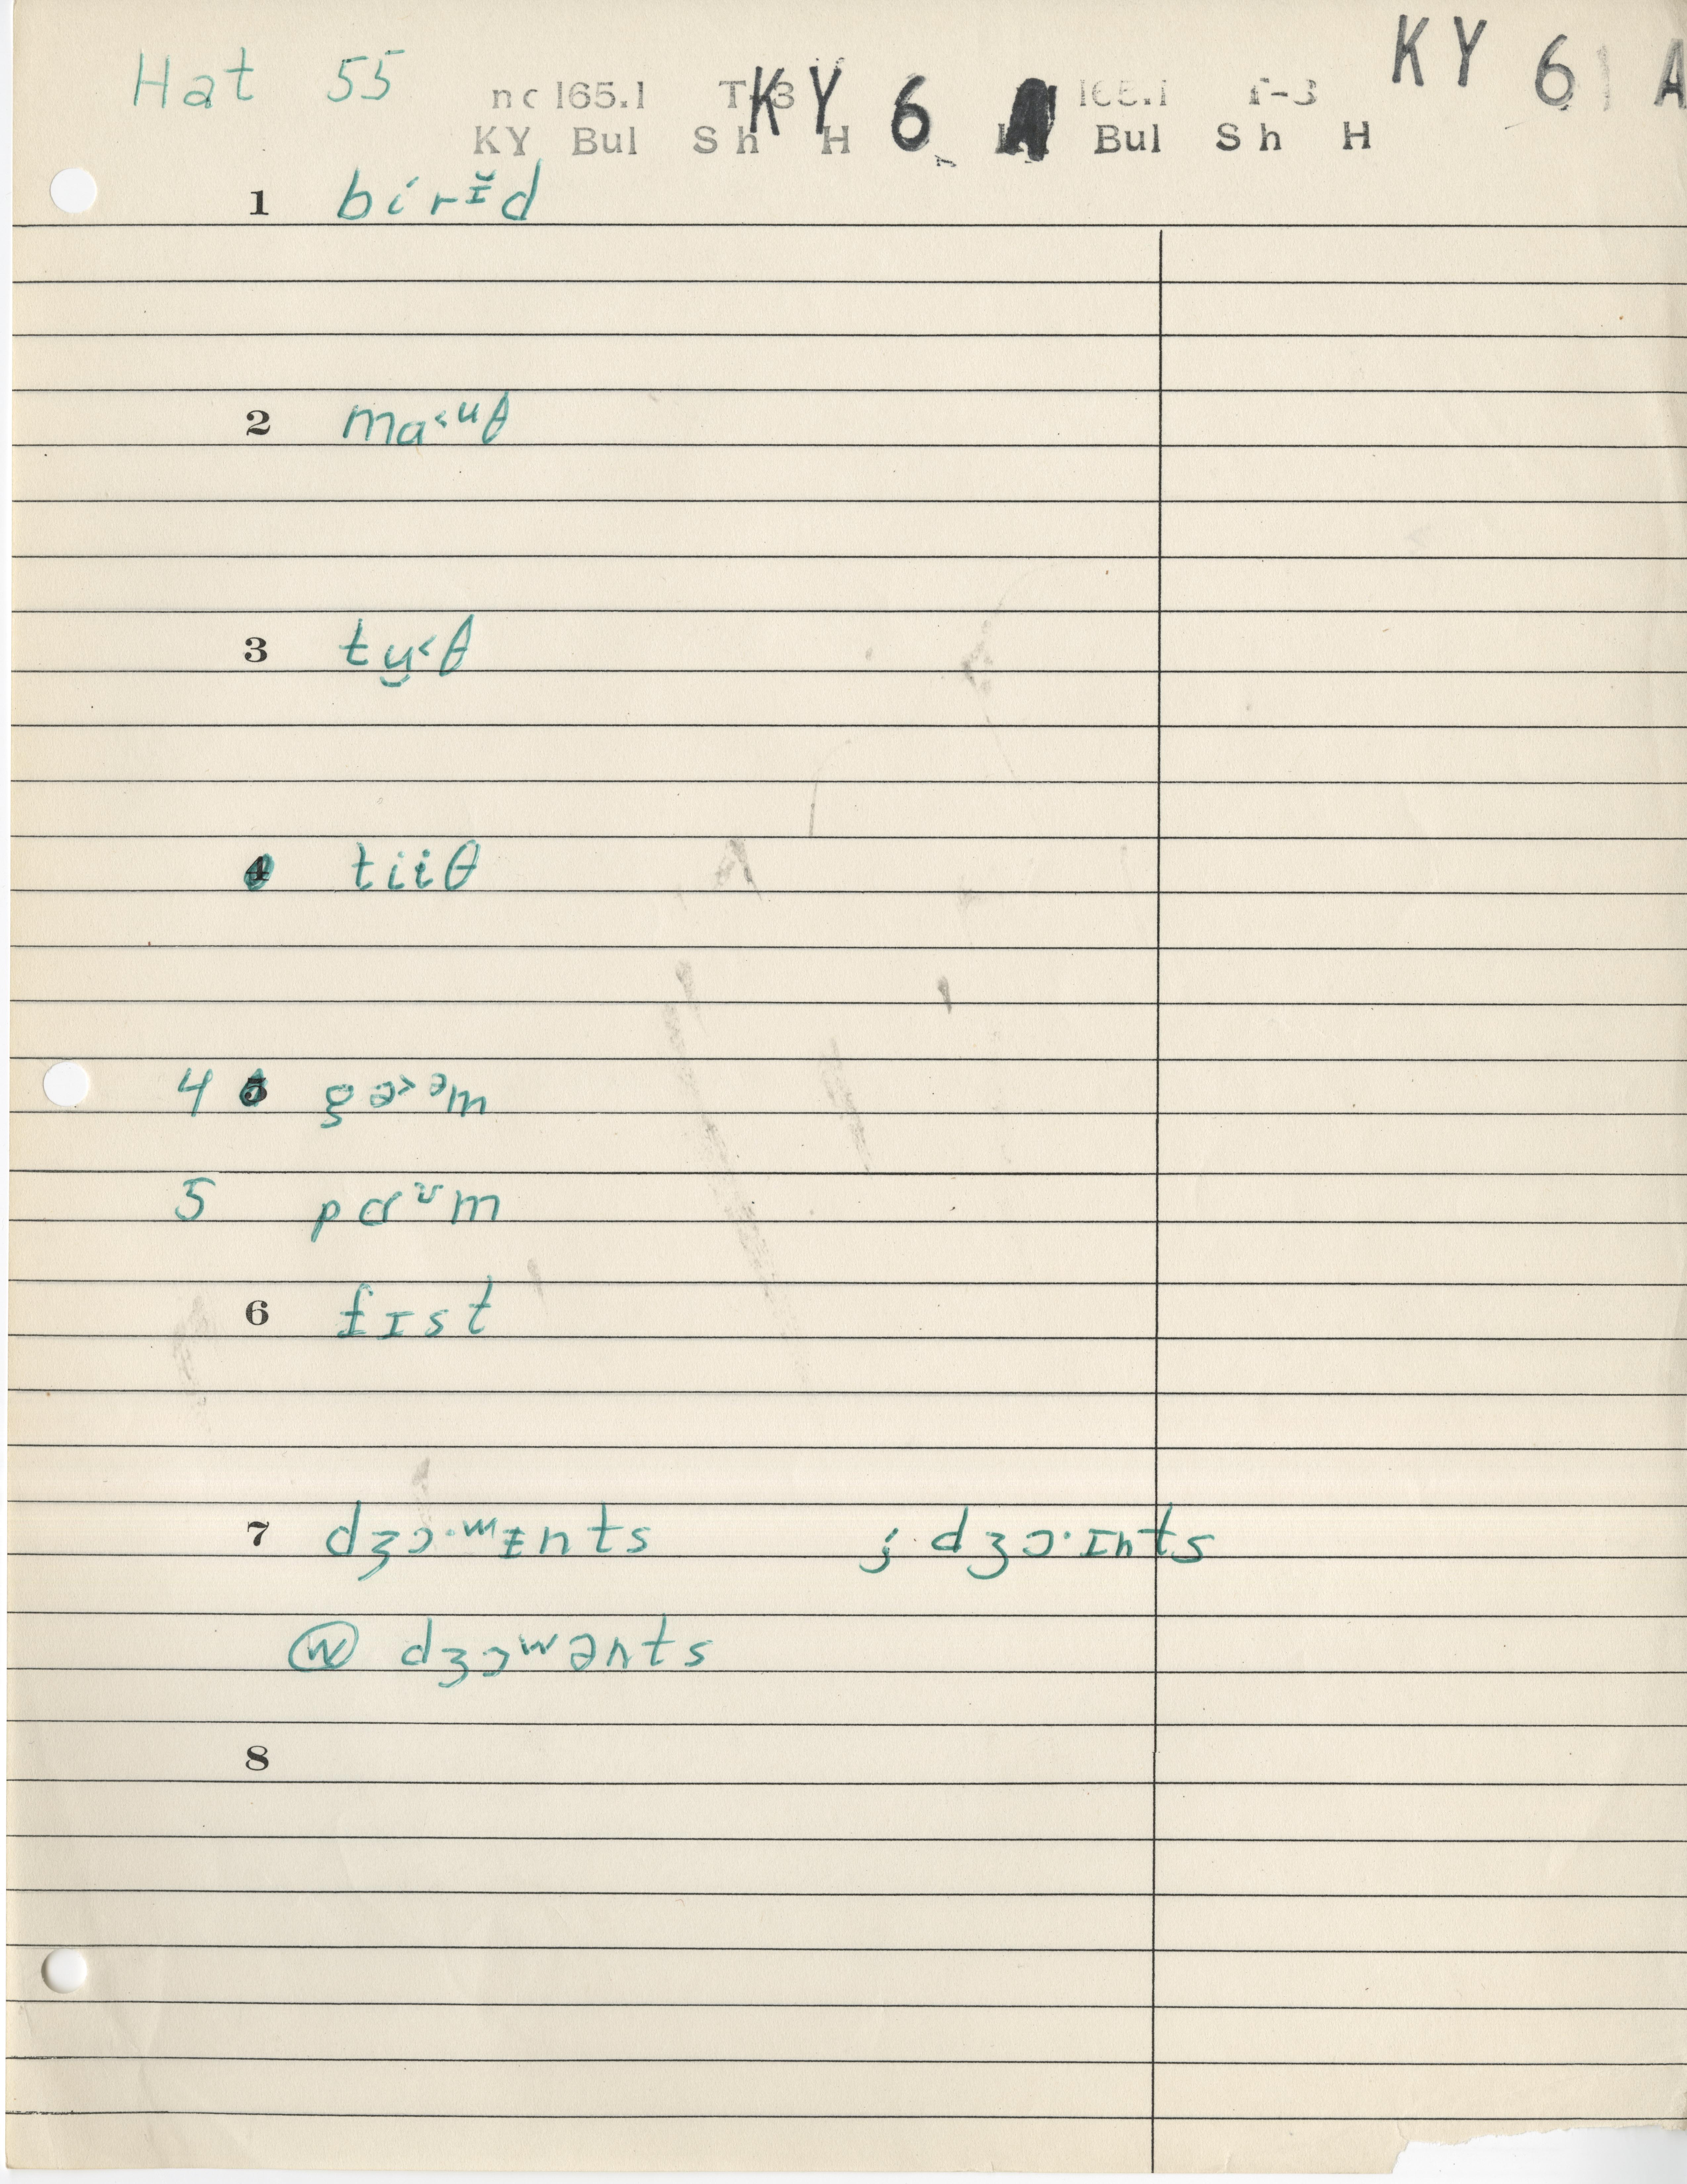 Hat 55
nc 165.1 T-3 165.1 T-3
KY 6 A KY 6 A
KY Bul Sh H Bul Sh H
1 birɪ̵̆d
2 ma˂ᵘθ
3 tʉ̮˂θ
4 tiɨθ
4 5 gɘ˃ᵊm
5 pɑᶷm
6 fɪst
7 dʒɔ·ʷɪ̵nts ; dʒɔ·ɪnts
ⓦ dʒɔʷənts
8